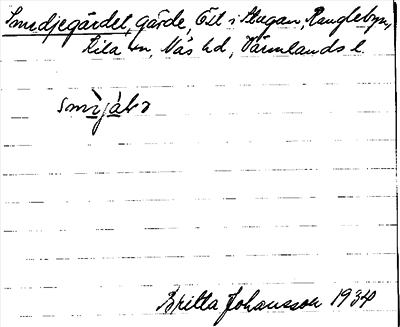 Smedjegärdet, gärde, Öll i Skagan, Ranglebyn,
Kila sn, Näs hd, Värmlands l.
Britta Johansson 1934